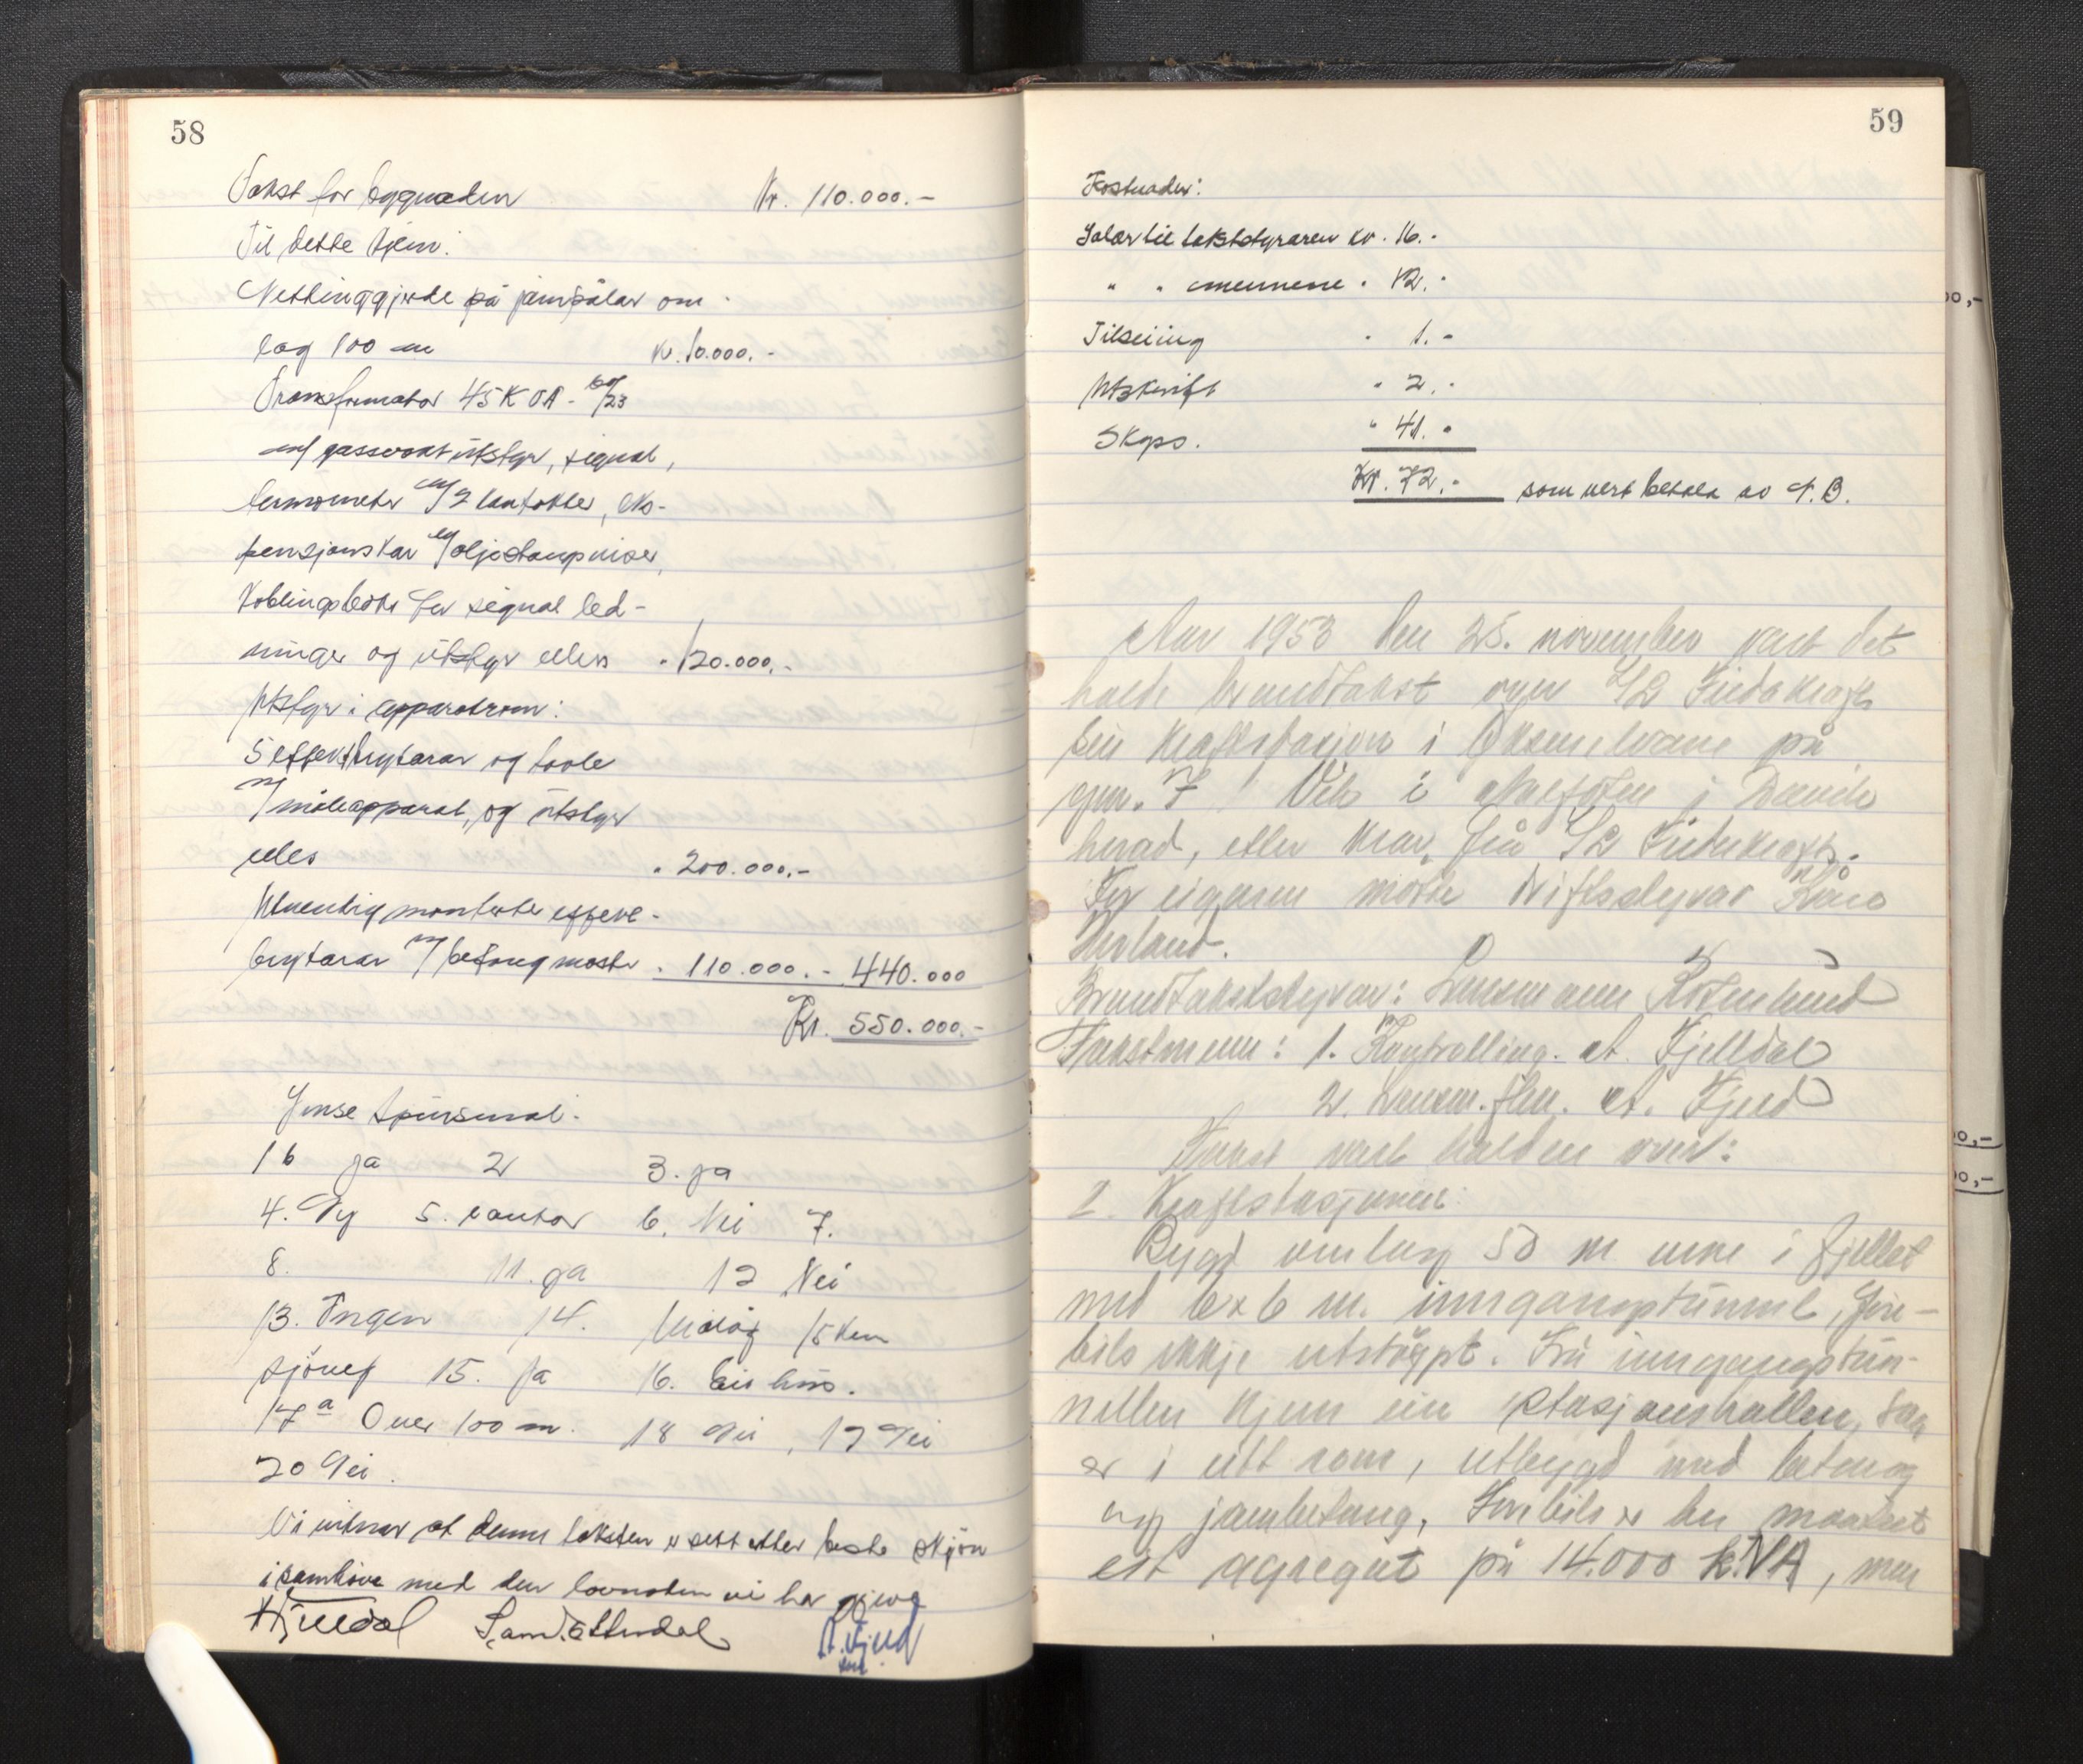 58
Takst for bygnaden Kr. 110.000.-
Til dette kjem:
Nettinggjerde på jarnpålar om-
lag 100 m kr. 10.000.-
Transformator 45 KVA -
m/ gassvakt utstyr, signal,
termometer m/2 kontakter, eks-
pensjonskar m/oljestandsviser,
Koblingsboks for signal led-
ninger og utstyr elles " 120.000.-
Utstyr i apparatrom:
5 effektbrytarar og tavle
m/ måleapparat, og utstyr
elles " 200.000.-
Utvendig monterte effekt-
brytarar m/betongmaster " 110.000.- 440.000
Kr. 550.000.-
Ymse spursmal:
1 b ja 2 3. ja
4. Ny 5. kantor 6. Nei 7.
8. 11. ja 12 Nei
13. Ingen 14. 15 km
sjöveg 15. Ja 16. Eit hus.
17 a Over 100 m. 18 Nei, 19 Nei
20 Nei.
Vi vitnar at denne taksten er sett etter beste skjön
i samhöve med den lovnaden vi har gjeve
A. Fjeld
59
Kostnader:
Salær til takststyraren kr. 16.-
" " mennene " 12.-
Tilseiing " 1.-
Utskrift " 2.-
Skyss. " 41.-
Kr. 72.- som vert betala av T.B.
Aar 1953 den 25. november vart det
halde brandtakst over S/L Firdakraft
sin kraftstasjon i Øksenelvane på
gnr. 7 Vik i Aalfoten i Davik
herad, etter krav frå S/L Firdakraft.
For eigaren møtte driftsstyrar Kåre
Brandtakststyrar: Lensmann Rosenlund
Takstmenn: 1. Kontrolling. A. Fjelldal
2. Lensm. flm. A. Fjeld
Takst vart halden over:
1. Kraftstasjonen:
Bygd omlag 50 m inne i fjellet
med 6 x 6 m. inngangstunnel, fire-
bils ikkje utstøypt. Frå inngangstun-
nellen kjem ein stasjonshallen, som
er i eitt rom, utbygd med betong
og jarnbetong. Fyribils er her montert
eit agregat på 14.000 k.VA, men